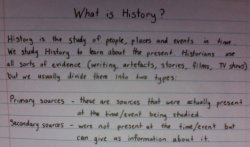 What is History?
History is the study of people, places and events in time.
We study History to learn about the present. Historians use
all sorts of evidence (writing, artefacts, stories, films, TV shows)
but we usually divide them into two types:
Primary sources - these are sources that were actually present
at the time/event being studied.
Secondary sources - were not present at the time/event but
can give us information about it.